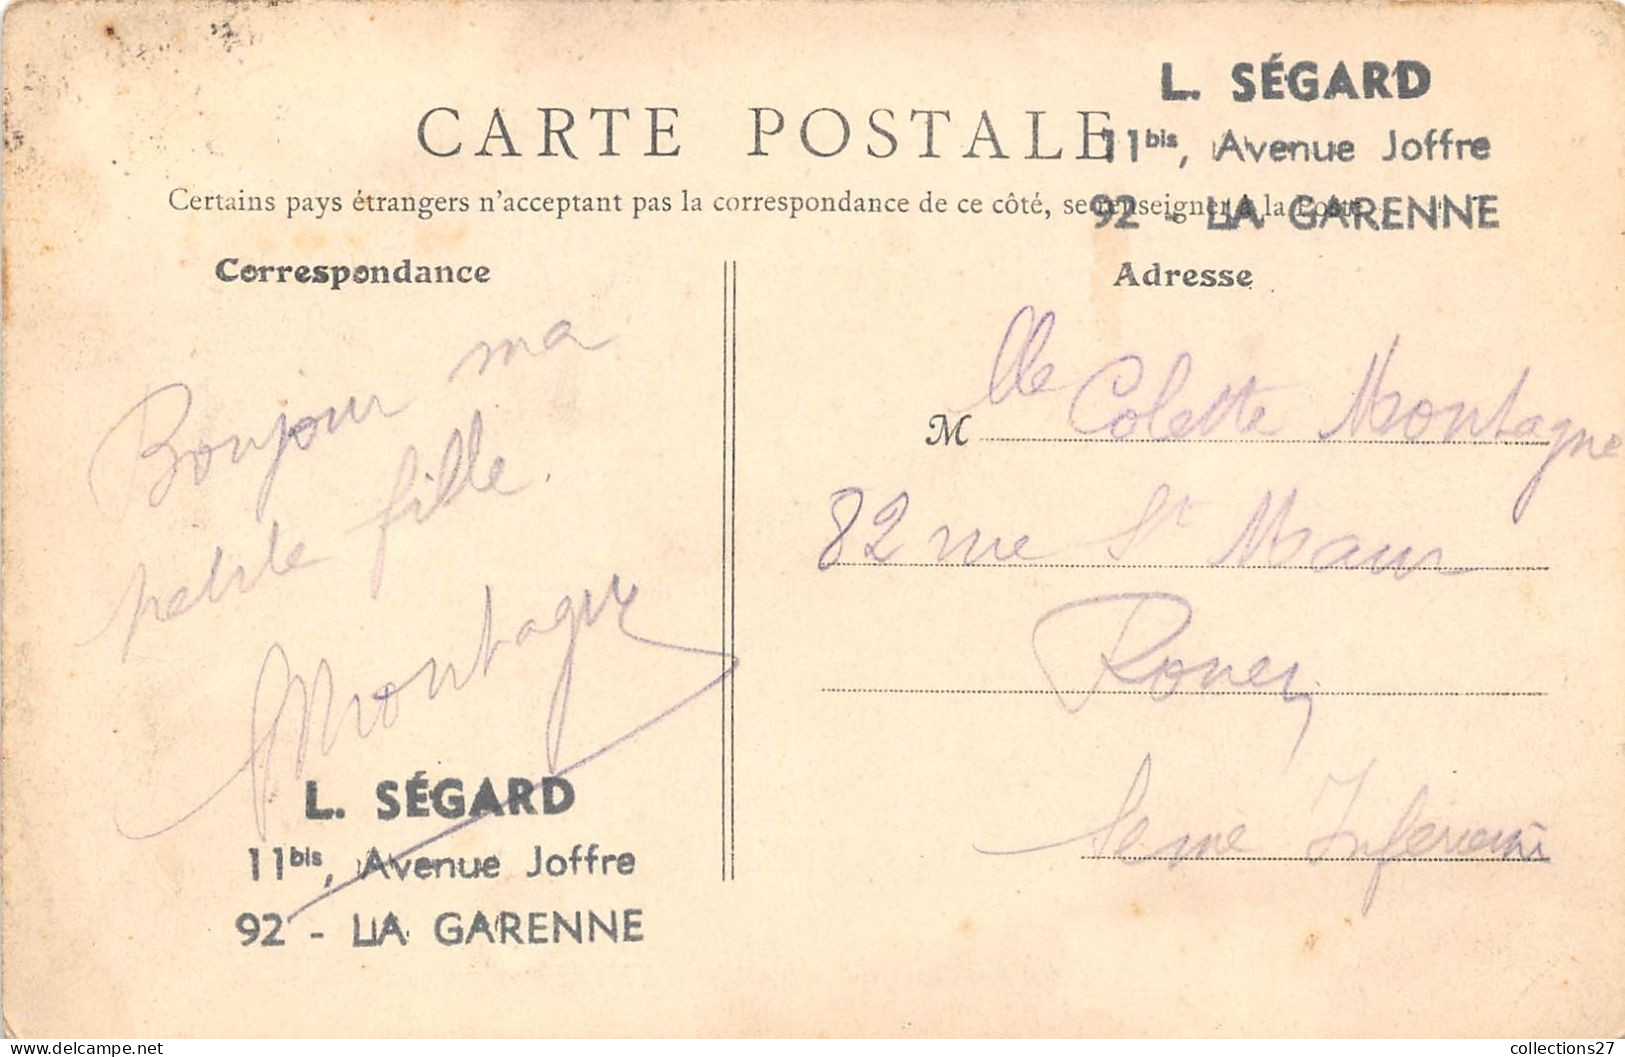 L. SÉGARD
11bis, Avenue Joffre
92 - LA GARENNE
CARTE POSTALE
Certains pays étrangers n'acceptent pas la correspondance de ce côté, se renseigner à la Poste
Correspondance
Bonjour ma
petite fille.
Montagne
L. SÉGARD
11bis, Avenue Joffre
92 - LA GARENNE
Adresse
M lle Colette Montagne
82 rue St Maur
Rouen
Seine Inférieure
collections27